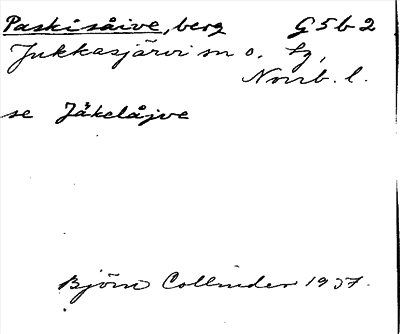 Paskisåive, berg G5b2
Jukkasjärvi sn o. tg,
Norrb. l.
se Jåkelåjve
Björn Collinder 1937.